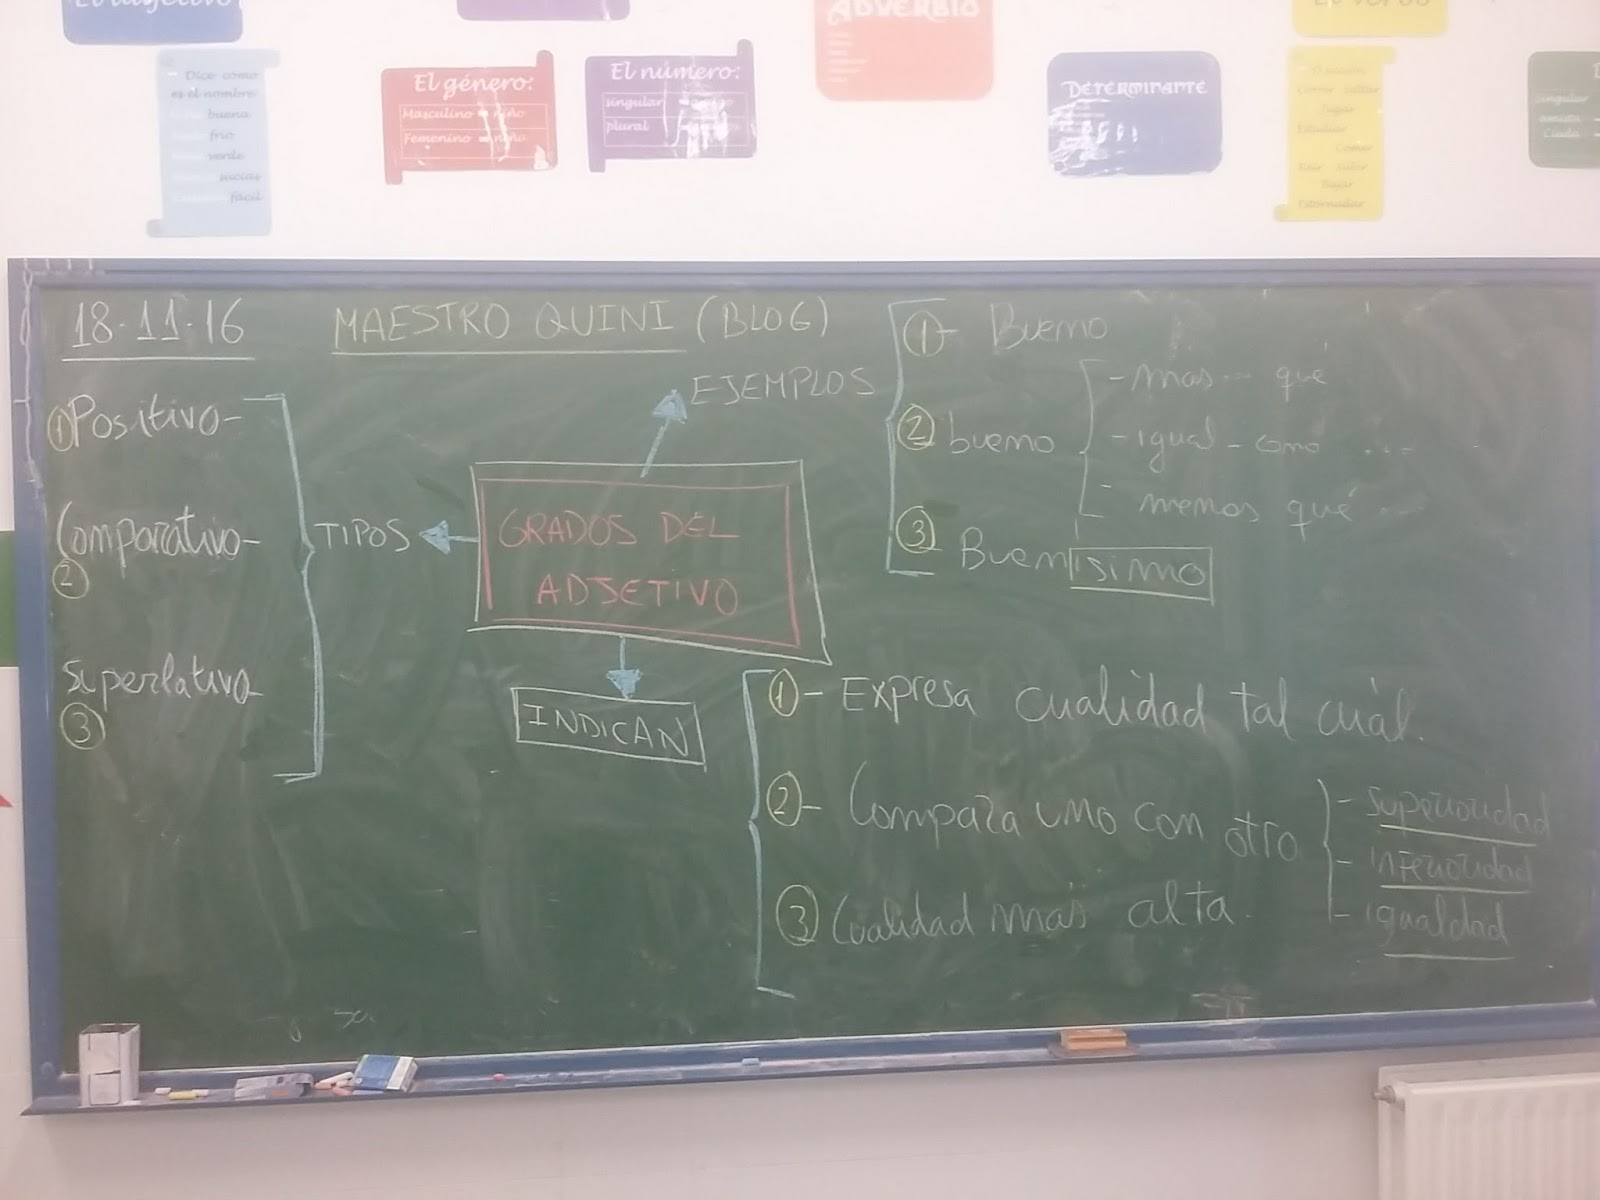 El adjetivo
ADVERBIO
El verbo
Dice cómo
es el nombre:
buena
frío
verde
sucias
fácil
El género:
Masculino = niño
Femenino = niña
El número:
singular
plural
DETERMINANTE
Correr saltar
Jugar
Estudiar
Comer
Reír subir
Bajar
Estornudar
singular
18-11-16
MAESTRO QUINI (BLOG)
① Positivo-
Comparativo-
②
Superlativo-
③
TIPOS
GRADOS DEL
ADJETIVO
EJEMPLOS
①- Bueno
② bueno
- más... qué
- igual - como ...
- menos qué ...
③ Buenísimo
INDICAN
①- Expresa cualidad tal cuál.
②- Compara uno con otro
- superioridad
- inferioridad
- igualdad
③ Cualidad más alta.